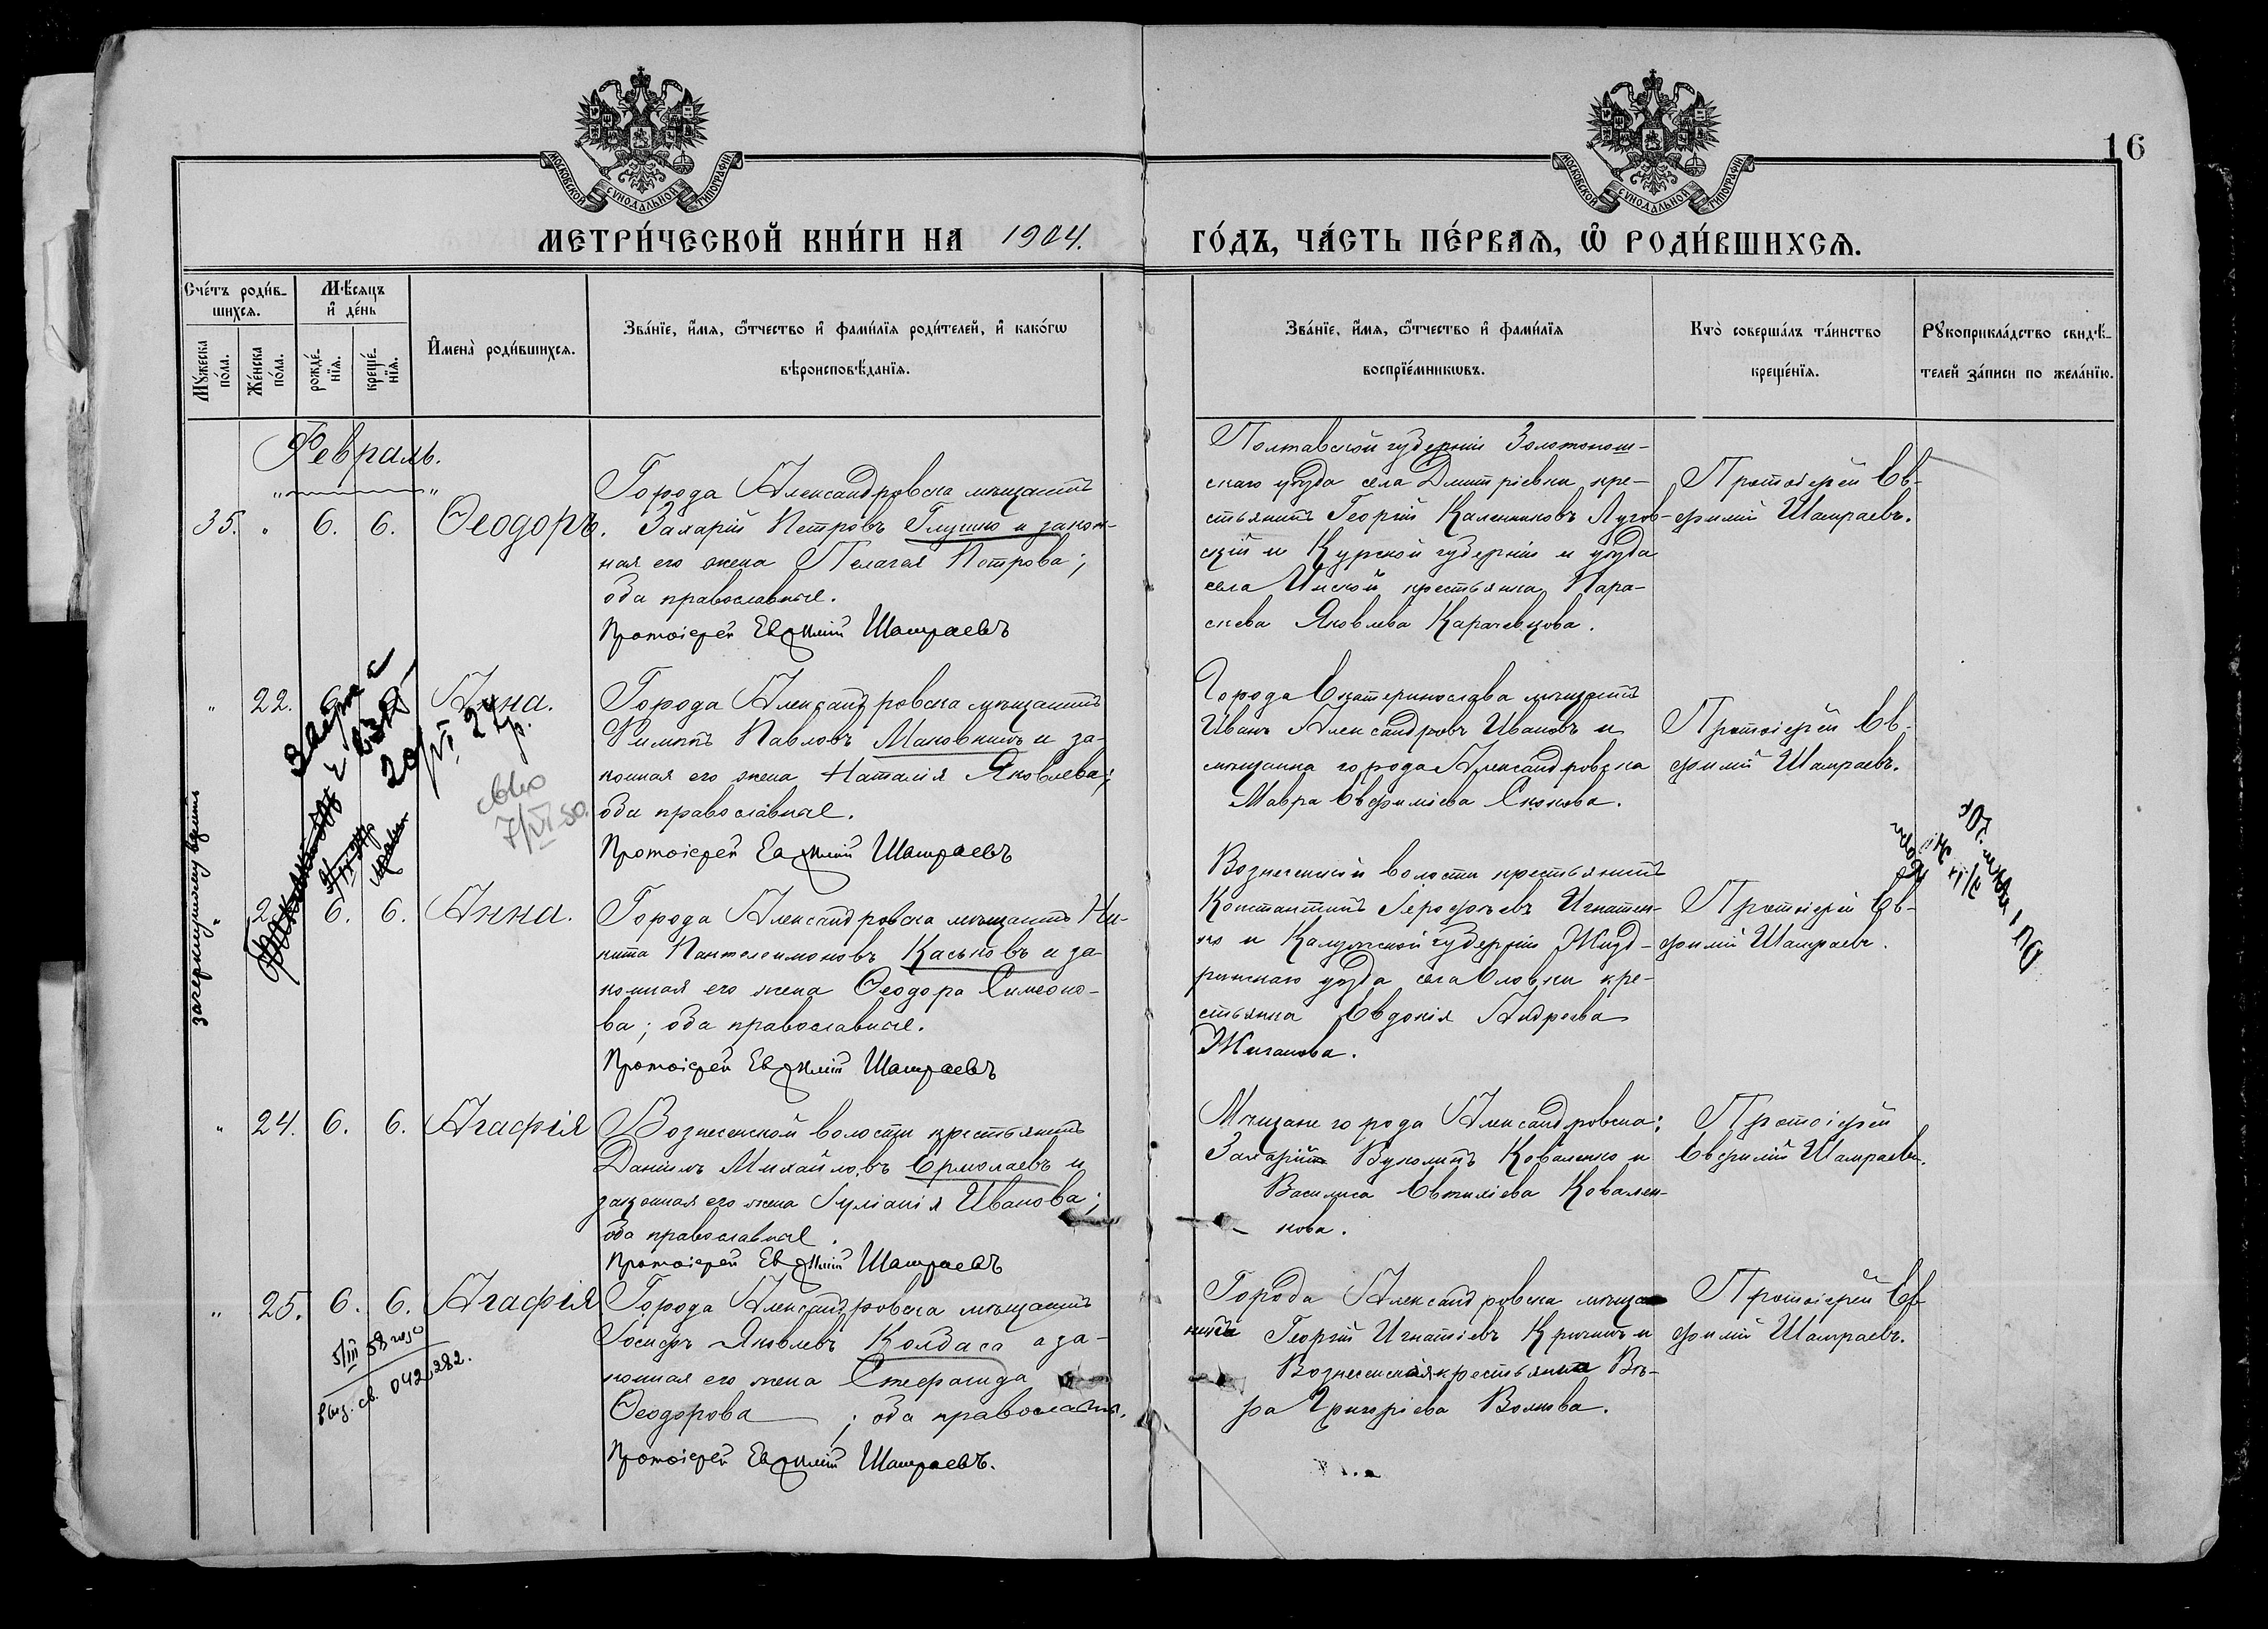 16
МОСКОВСКОЙ СѴНОДАЛЬНОЙ ТИПОГРАФІИ
МОСКОВСКОЙ СѴНОДАЛЬНОЙ ТИПОГРАФІИ
МЕТРИ́ЧЕСКОЙ КНИ́ГИ НА 1904. ГО́ДЪ, ЧА́СТЬ ПЕ́РВАЯ, Ѡ҆ РОДИ́ВШИХСЯ.
Сче́тъ роди́в-
шихся.
Мѣ́сяцъ
и҆ де́нь
Мꙋ́жеска по́ла.
Же́нска по́ла.
рожде́-
нїя.
креще́-
нїя.
И҆мена̀ роди́вшихся.
Зва́нїе, и҆́мя, ѻ҆́тчество и҆ фами́лїя роди́телей, и҆ како́гѡ
вѣроисповѣ́данїя.
Зва́нїе, и҆́мя, ѻ҆́тчество и҆ фами́лїя
воспрїе́мникѡвъ.
Кто̀ соверша́лъ та́инство
креще́нїя.
Рꙋкоприкла́дство свидѣ́-
телей за́писи по жела́нїю.
Февраль.
35. " 6. 6. Ѳеодоръ.
Города Александровска мѣщанинъ
Захарій Петровъ Глушко и закон-
ная его жена Пелагея Петрова;
оба православные.
Протоіерей Евѳимій Шамраевъ
Полтавской губерніи Золотонош-
скаго уѣзда села Дмитріевки кре-
стьянинъ Георгій Калениковъ Лугов-
скій и Курской губерніи и уѣзда
села крестьянка Пара-
скева Яковлева Карачевцова.
Протоіерей Ев-
фимій Шамраевъ.
" 22. 6. 6. Анна.
Города Александровска мѣщанинъ
Павловъ Маковкинъ и за-
конная его жена Наталія Яковлева;
оба православные.
Протоіерей Евѳимій Шамраевъ
Города Екатеринослава мѣщанинъ
Иванъ Александровъ Ивановъ и
мѣщанка города Александровска
Мавра Евфиміева Скокова.
Протоіерей Ев-
фимій Шамраевъ.
20/VI 24
7/VI 50.
зачеркнутому верить
" 6. 6. Анна.
Города Александровска мѣщанинъ Ни-
кита Пантелеимоновъ Каськовъ и за-
конная его жена Ѳеодора Симеоно-
ва; оба православные.
Протоіерей Евѳимій Шамраевъ
Вознесенской волости крестьянинъ
Константинъ Іероѳеевъ Игнатен-
ко и Калужской губерніи Жизд-
ринскаго уѣзда села Словки кре-
стьянка Евдокія Андреева
Жиганова.
Протоіерей Ев-
фимій Шамраевъ.
" 24. 6. 6. Агафія
Вознесенской волости крестьянинъ
Даніилъ Михайловъ Ермолаевъ и
законная его жена Іуліанія Иванова;
оба православные.
Протоіерей Евѳимій Шамраевъ
Мѣщане города Александровска:
Захарій Вуколовъ Коваленко и
Василиса Евтихіева Ковален-
кова.
Протоіерей
Евфимій Шамраевъ.
" 25. 6. 6. Агафія
Города Александровска мѣщанинъ
Іосифъ Яковлевъ Колбаса и за-
конная его жена Стефанида
Ѳеодорова; оба православны.
Протоіерей Евѳимій Шамраевъ.
Города Александровска мѣща-
нинъ Георгій Игнатіевъ Кричинъ и
Вознесенская крестьянка Вѣ-
ра Григоріева Волкова.
Протоіерей Ев-
фимій Шамраевъ.
5/III 58 года
выд. св. 042282.